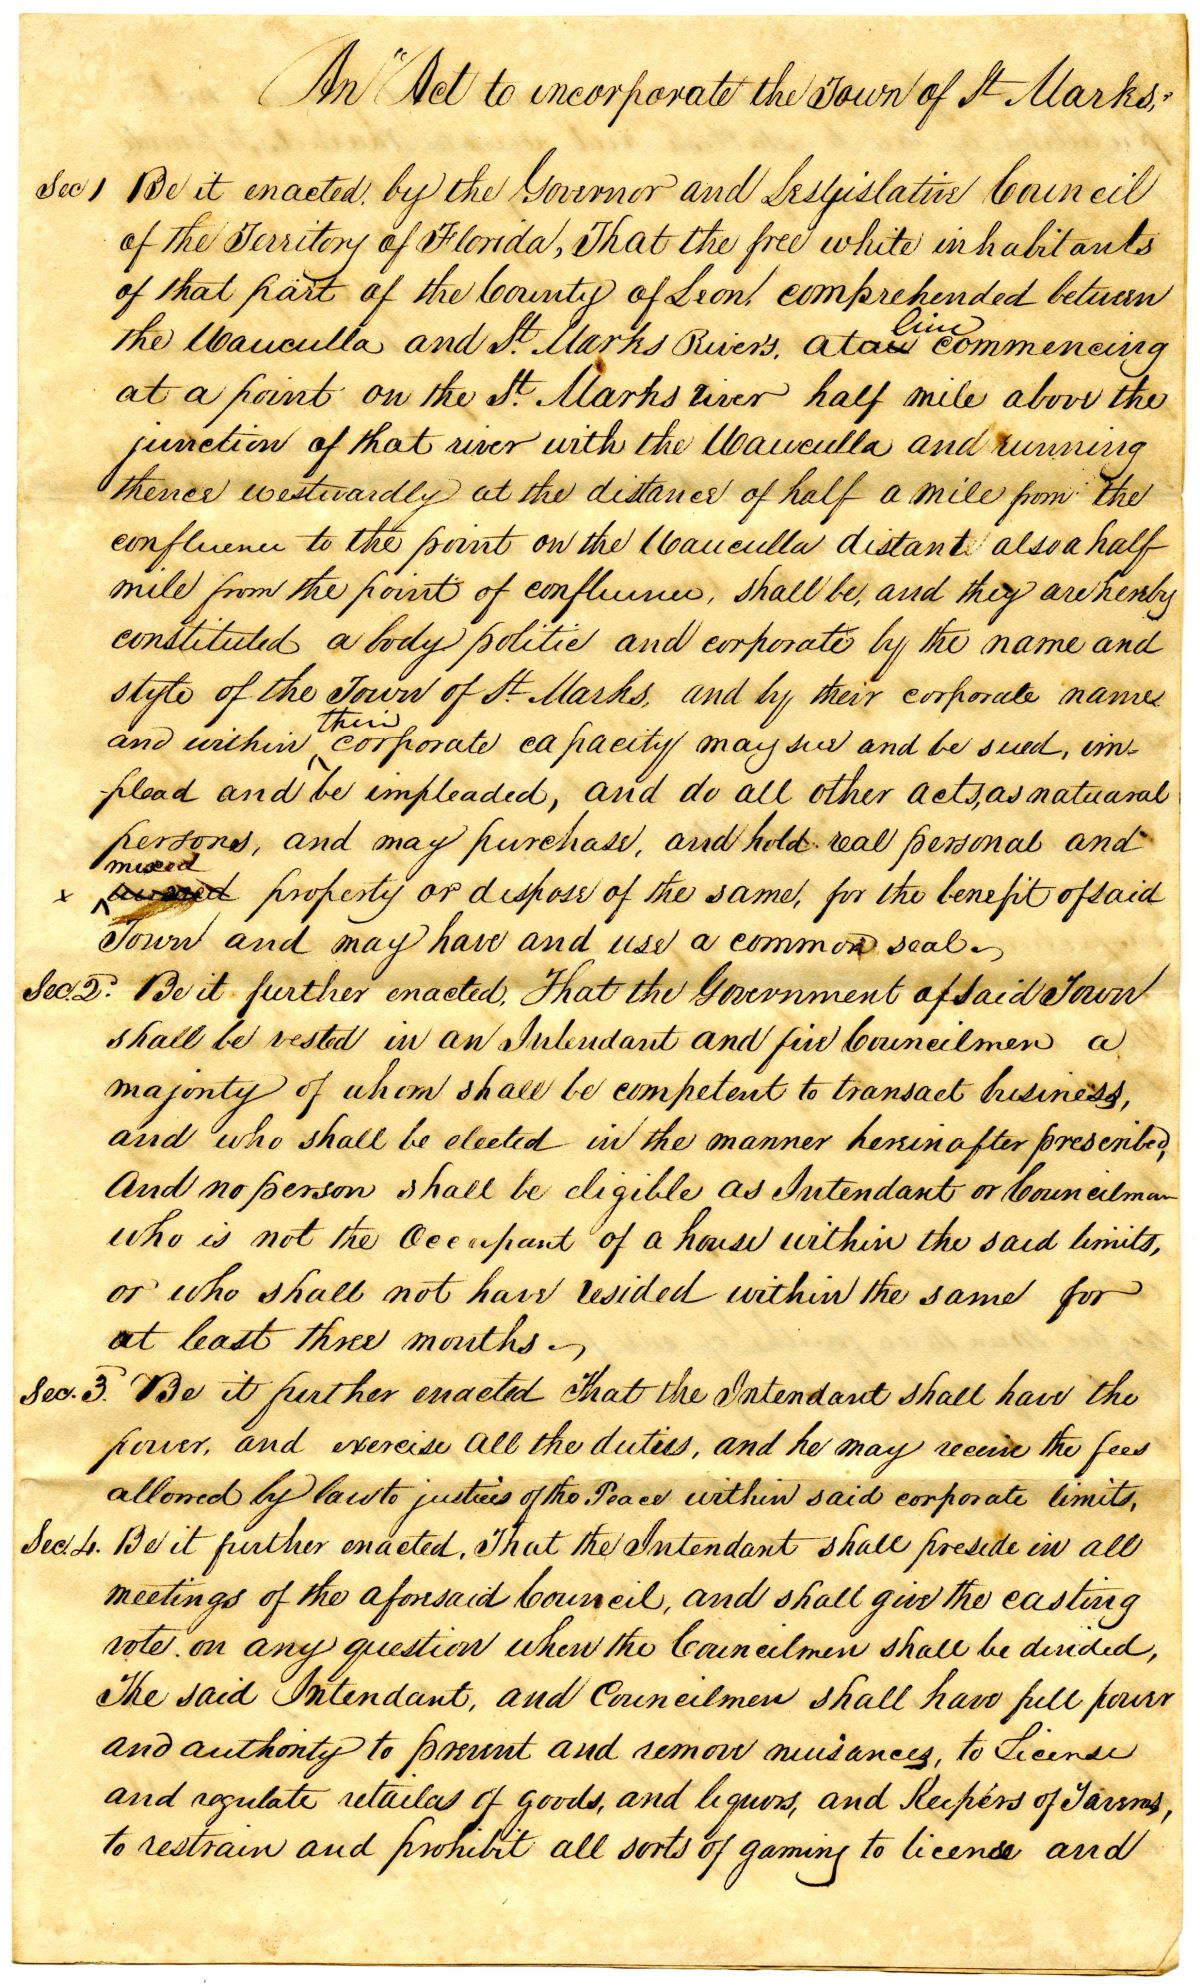 An "Act to incorporate the Town of St. Marks,
Sec 1 Be it enacted, by the Governor and Leslgislative Council
of the Territory of Florida, That the free white inhabitants
of that part of the County of Leon, comprehended between
the Wauculla and St. Marks Rivers, at a line commencing
at a point on the St. Marks river half mile above the
junction of that river with the Wauculla and running
thence westwardly at the distance of half a mile from the
confluence to the point on the Wauculla distant also a half
mile from the point of confluence, shall be, and they are hereby
constituted a body politic and corporate by the name and
style of the Town of St. Marks, and by their corporate name
and within their corporate capacity may sue and be sued, im-
-plead and be impleaded, and do all other acts, as natuaral
persons, and may purchase, and hold real personal and
x mixed property or dispose of the same, for the benefit of said
Town and may have and use a common seal.
Sec. 2d. Be it further enacted, That the Government of said Town
shall be vested in an Intendant and five Councilmen a
majority of whom shall be competent to transact business,
and who shall be elected in the manner hereinafter prescribed,
And no person shall be eligible as Intendant or Councilman
who is not the Occupant of a house within the said limits,
or who shall not have resided within the same for
at least three months.
Sec. 3. Be it further enacted That the Intendant shall have the
power, and exercise all the duties, and he may receive the fees
allowed by law to justices of the Peace within said corporate limits,
Sec. 4. Be it further enacted, That the Intendant shall preside in all
meetings of the aforesaid Council, and shall give the casting
vote on any question when the Councilmen shall be divided,
The said Intendant, and Councilmen shall have full power
and authority to prevent and remove nuisances, to License
and regulate retailers of goods, and liquors, and Keepers of Taverns,
to restrain and prohibit all sorts of gaming to license and